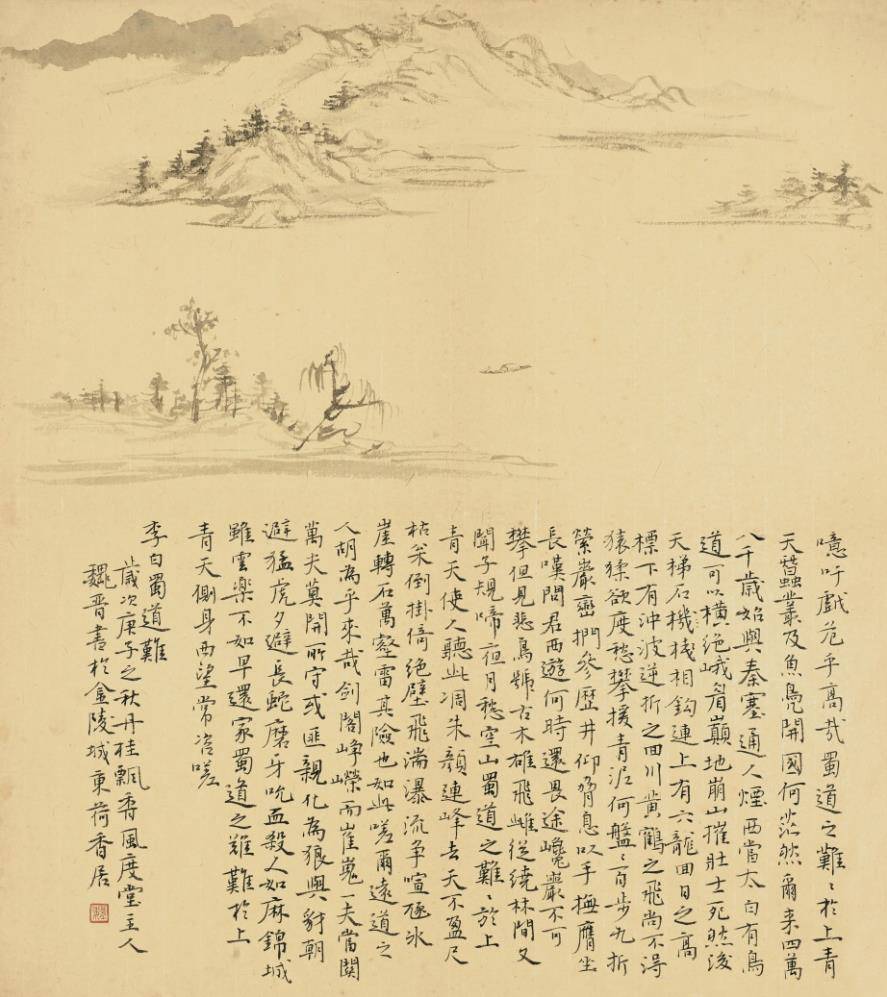 噫吁戲危乎高哉蜀道之難〻於上青
天蠶叢及魚鳧開國何茫然爾来四萬
八千歲始與秦塞通人煙西當太白有鳥
道可以橫绝峨眉巔地崩山摧壮士死然後
天梯石機棧相鈎連上有六龍回日之高
標下有沖波逆折之回川黄鶴之飛尚不得
猿猱欲度愁攀援青泥何盤〻百步九折
縈巖巒捫參歷井仰脅息以手撫膺坐
長嘆問君西遊何時還畏途巉巖不可
攀但見悲鳥號古木雄飛雌從繞林間又
聞子規啼夜月愁空山蜀道之難〻於上
青天使人聽此凋朱顏連峰去天不盈尺
枯松倒掛倚绝壁飛湍瀑流争喧豗冰
崖轉石萬壑雷其險也如此嗟爾遠道之
人胡為乎来哉劍閣崢嶸而崔嵬一夫當關
萬夫莫開所守或匪親化為狼與豺朝
避猛虎夕避長蛇磨牙吮血殺人如麻錦城
雖雲樂不如早還家蜀道之難難於上
青天側身西望常咨嗟
李白蜀道難
歲次庚子之秋丹桂飄香風度堂主人
魏晋書於金陵城東荷香居